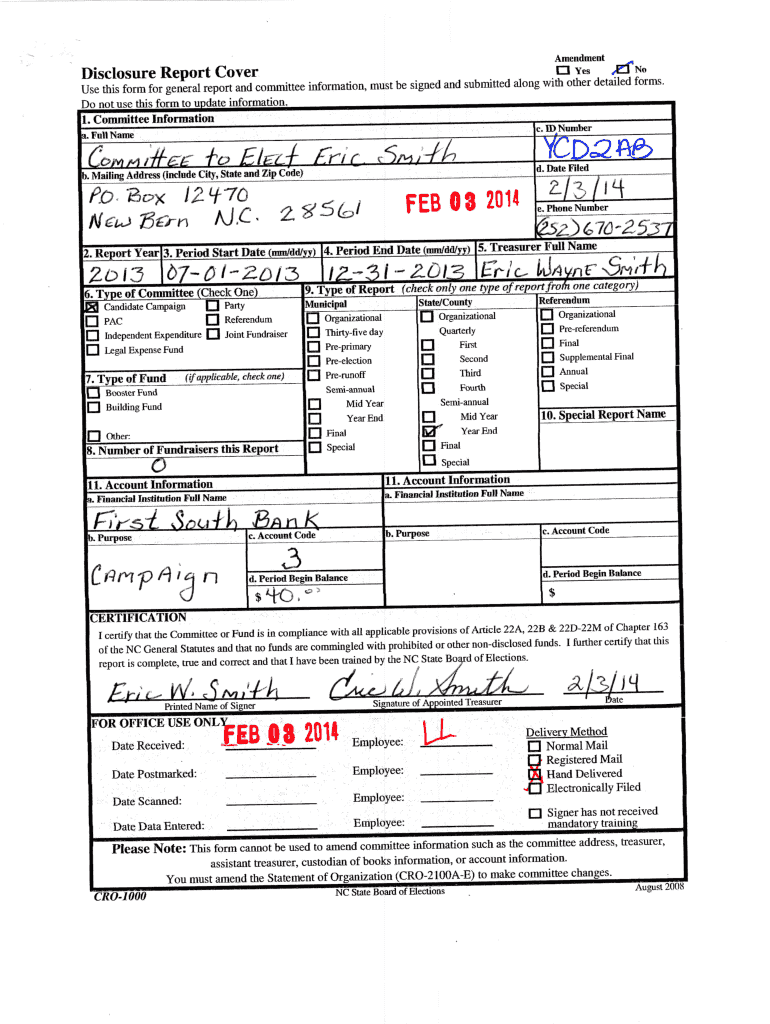 Amendment
Disclosure Report Cover
☐ Yes ☑ No
Use this form for general report and committee information, must be signed and submitted along with other detailed forms.
Do not use this form to update information.
1. Committee Information
a. Full Name
c. ID Number
Committee to Elect Eric Smith
YCD2AB
b. Mailing Address (include City, State and Zip Code)
d. Date Filed
P.O. Box 12470
2/3/14
FEB 03 2014
e. Phone Number
New Bern N.C. 28561
(252) 670-2537
2. Report Year 3. Period Start Date (mm/dd/yy) 4. Period End Date (mm/dd/yy) 5. Treasurer Full Name
2013 07-01-2013 12-31-2013 Eric Wayne Smith
6. Type of Committee (Check One)
☒ Candidate Campaign ☐ Party
☐ PAC ☐ Referendum
☐ Independent Expenditure ☐ Joint Fundraiser
☐ Legal Expense Fund
7. Type of Fund (if applicable, check one)
☐ Booster Fund
☐ Building Fund
☐ Other:
8. Number of Fundraisers this Report
0
9. Type of Report (check only one type of report from one category)
Municipal
☐ Organizational
☐ Thirty-five day
☐ Pre-primary
☐ Pre-election
☐ Pre-runoff
Semi-annual
☐ Mid Year
☐ Year End
☐ Final
☐ Special
State/County
☐ Organizational
Quarterly
☐ First
☐ Second
☐ Third
☐ Fourth
Semi-annual
☐ Mid Year
☑ Year End
☐ Final
☐ Special
Referendum
☐ Organizational
☐ Pre-referendum
☐ Final
☐ Supplemental Final
☐ Annual
☐ Special
10. Special Report Name
11. Account Information
a. Financial Institution Full Name
First South Bank
b. Purpose
c. Account Code
3
Campaign
d. Period Begin Balance
$ 40.00
11. Account Information
a. Financial Institution Full Name
b. Purpose
c. Account Code
d. Period Begin Balance
$
CERTIFICATION
I certify that the Committee or Fund is in compliance with all applicable provisions of Article 22A, 22B & 22D-22M of Chapter 163
of the NC General Statutes and that no funds are commingled with prohibited or other non-disclosed funds. I further certify that this
report is complete, true and correct and that I have been trained by the NC State Board of Elections.
Eric W. Smith Eric W. Smith 2/3/14
Printed Name of Signer Signature of Appointed Treasurer Date
FOR OFFICE USE ONLY
Date Received: FEB 03 2014 Employee: LL
Date Postmarked: Employee:
Date Scanned: Employee:
Date Data Entered: Employee:
Delivery Method
☐ Normal Mail
☐ Registered Mail
☒ Hand Delivered
☐ Electronically Filed
☐ Signer has not received
mandatory training
Please Note: This form cannot be used to amend committee information such as the committee address, treasurer,
assistant treasurer, custodian of books information, or account information.
You must amend the Statement of Organization (CRO-2100A-E) to make committee changes.
CRO-1000 NC State Board of Elections August 2008